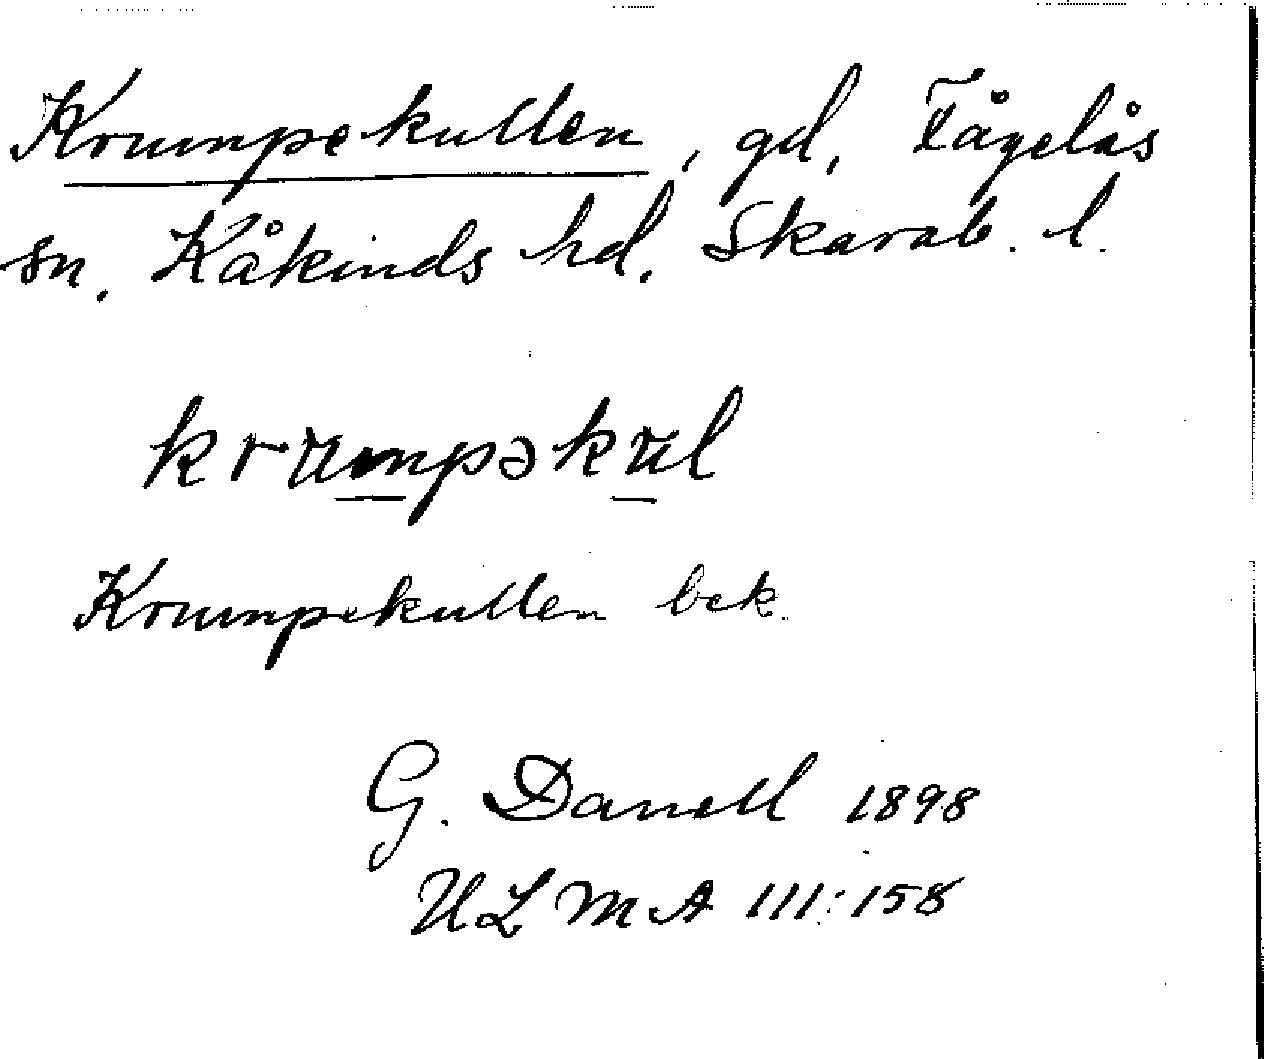 Krumpekullen, gd, Fågelås
sn. Kåkinds hd. Skarab. l.
krumpəkul
Krumpekullen bek.
G. Danell 1898
ULMA 111:158